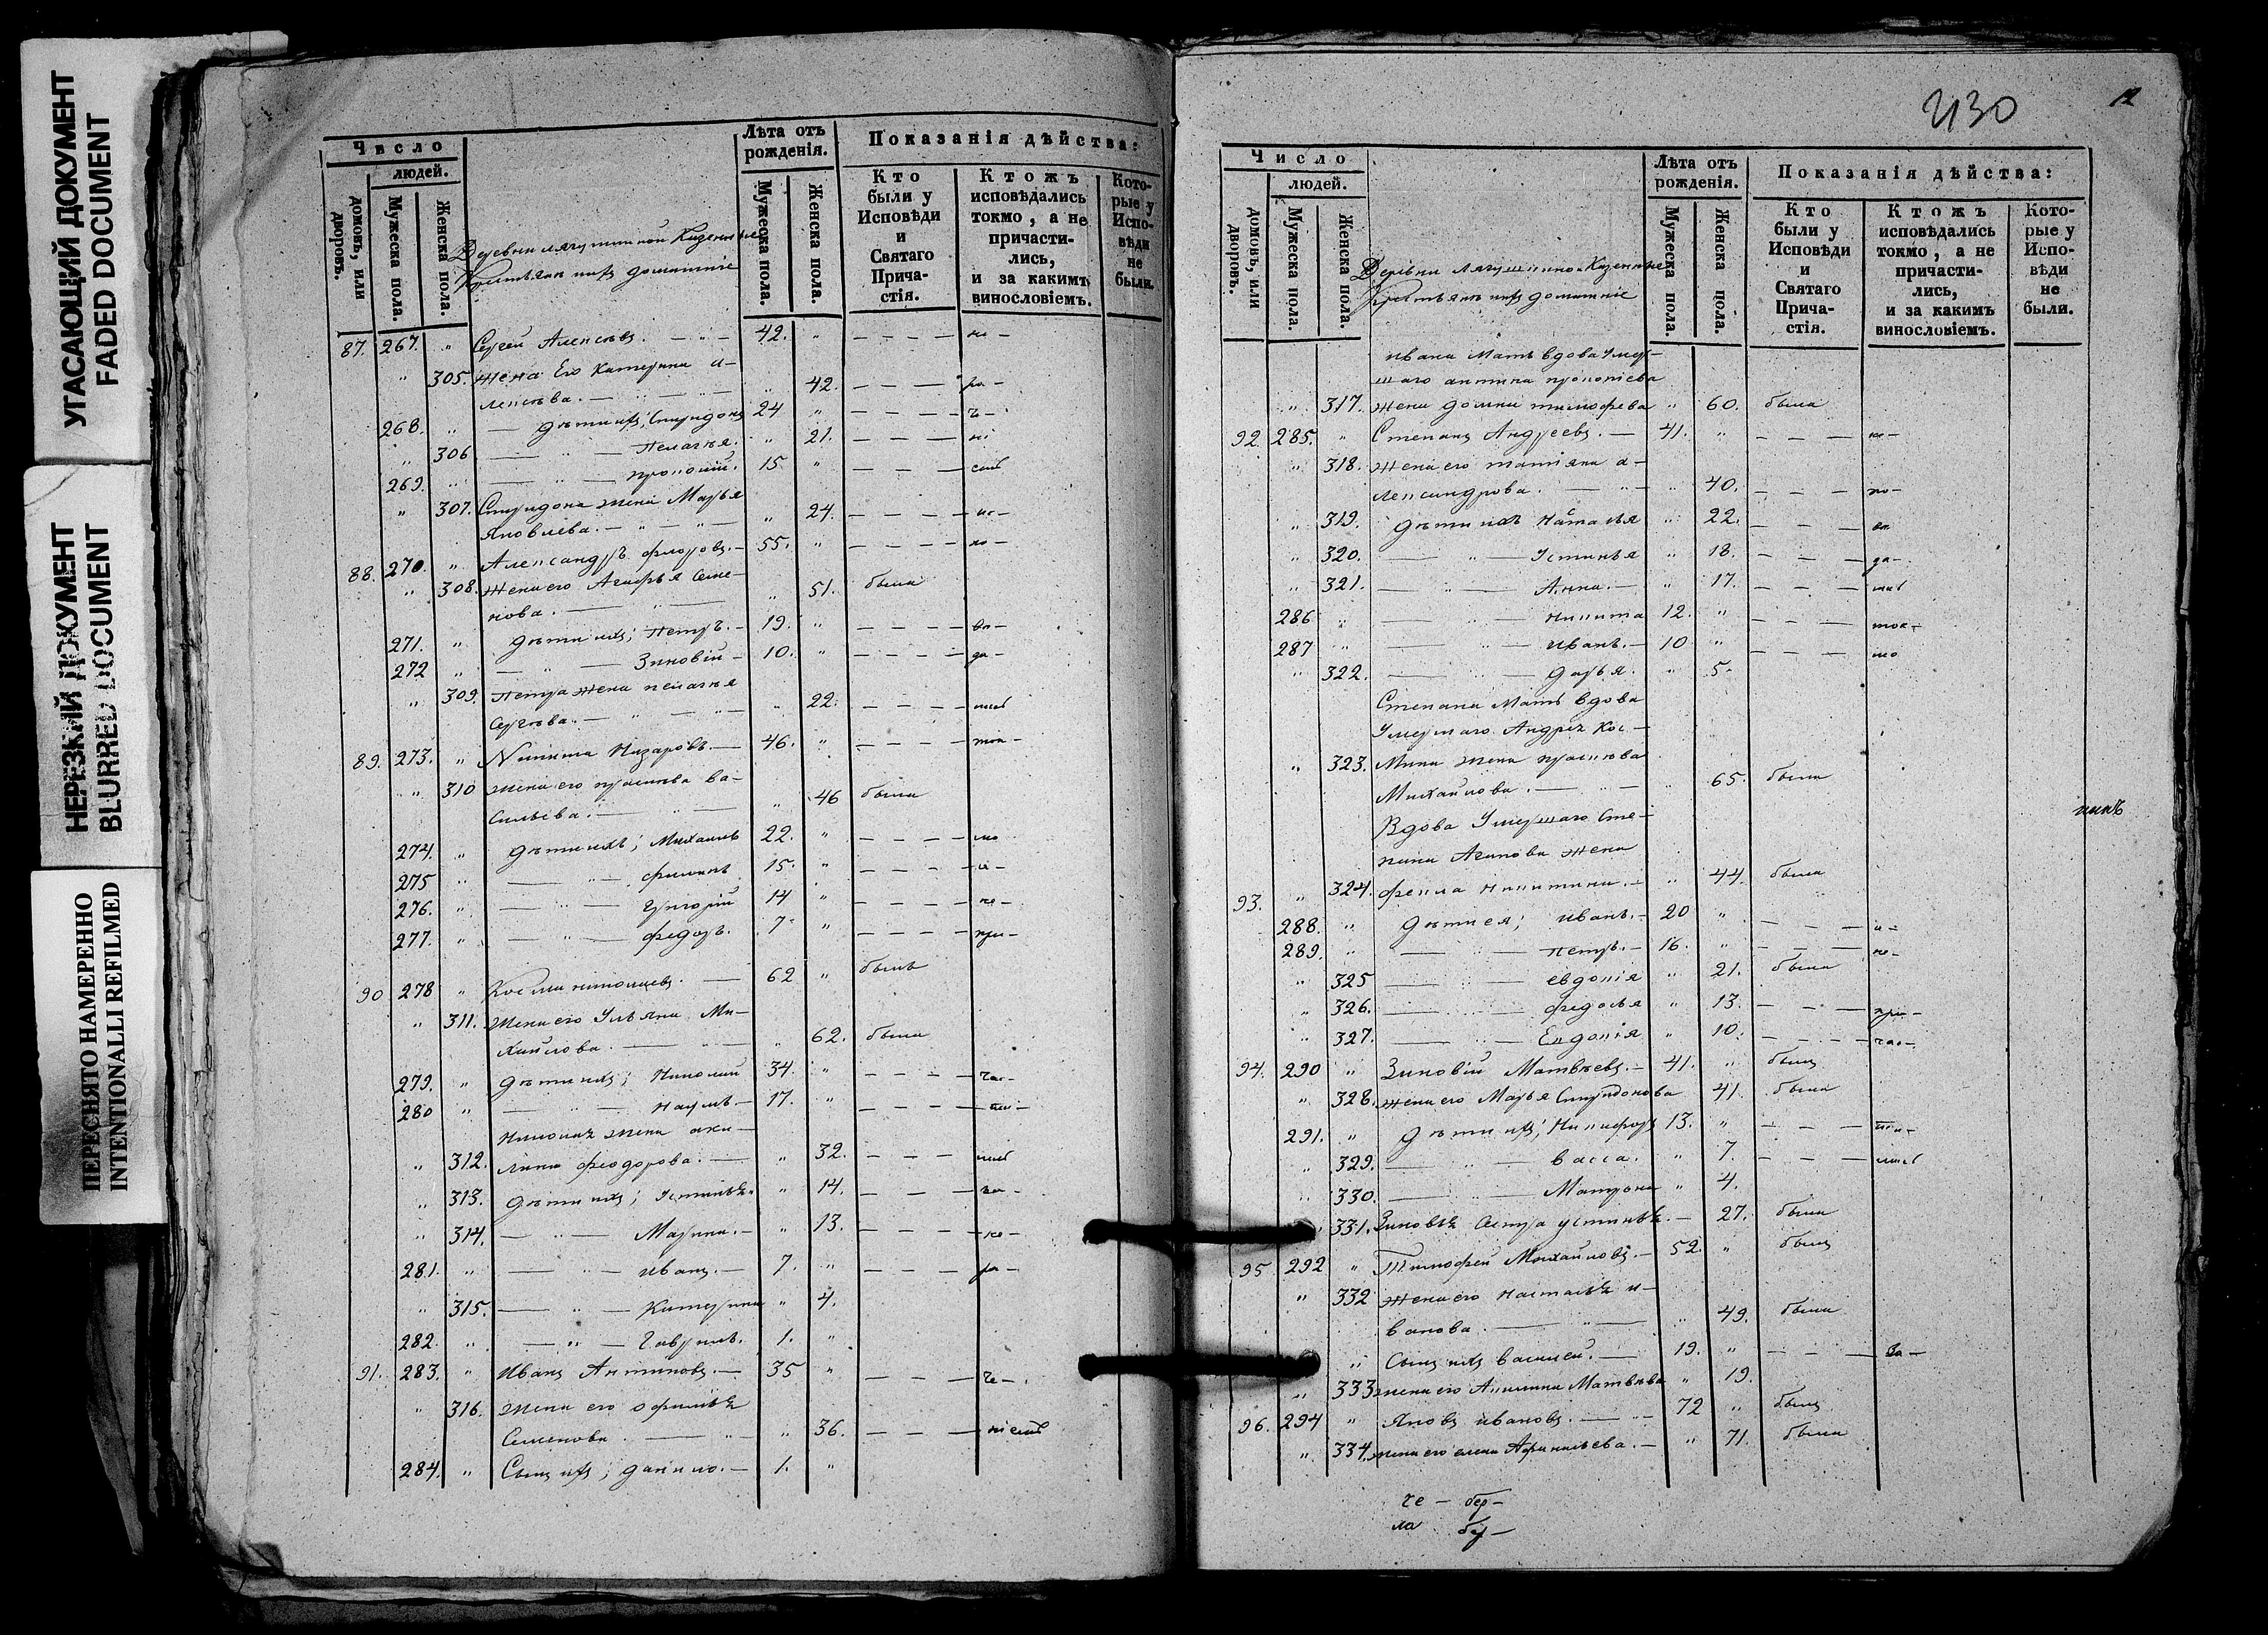 УГАСАЮЩИЙ ДОКУМЕНТ
FADED DOCUMENT
НЕРЕЗКИЙ ДОКУМЕНТ
BLURRED DOCUMENT
ПЕРЕСНЯТО НАМЕРЕННО
INTENTIONALLI REFILMED
Число
людей.
домовъ, или дворовъ.
Мужеска пола.
Женска пола.
Лѣта отъ рожденія.
Мужеска пола.
Женска пола.
Показанія дѣйства:
Кто были у Исповѣди и Святаго Причастія.
Ктожъ исповѣдались токмо, а не причастились, и за какимъ винословіемъ.
Которые у Исповѣди не были.
Деревни Лягушиной Казенные
Крестьяне ихъ домашніе
87. 267. " Сергей Алексѣевъ. 42. " не
" 305. жена Его Катерина А-
лексѣева. " 42. ра
268. " дѣти ихъ, Спиридонъ 24 "
" 306 Пелагея. " 21.
269. " Прокопій. 15 "
" 307. Спиридона жена Марья
Яковлева. " 24.
88. 270. " Александръ Флоровъ. 55. " по
" 308. жена его Агафья Семе-
нова. " 51. была
271. " дѣти ихъ; Петръ. 19. "
272 " Зиновій 10. " да
" 309. Петра жена Пелагея
Сергѣева. " 22.
89. 273. " Никита Назаровъ 46. " ток
" 310 жена его Праскева Ва-
сильева. " 46 была
274. " дѣти ихъ; Михаилъ 22. " мо
275 " Филипъ 15. " а
276. " Григорій 14 " не
277. " Федоръ. 7 " при
90 278 " Косма 62 " былъ
" 311. жена его Ульяна Ми-
хайлова. " 62. была
279. " дѣти ихъ; Николай 34. " час
280 " Наумъ 17. " ти
Николая жена Аку-
" 312. лина Феодорова. " 32.
" 313. дѣти ихъ; Устинья " 14.
" 314. Марина. " 13.
281. " Иванъ. 7. " ра
" 315. Катерина " 4.
282. " Гаврилъ. 1. "
91. 283. " Иванъ Антиповъ. 35 "
" 316. жена его Офимья
Семенова. " 36.
284. " Сынъ ихъ; Данило. 1. "
430
12
Число
людей.
домовъ, или дворовъ.
Мужеска пола.
Женска пола.
Лѣта отъ рожденія.
Мужеска пола.
Женска пола.
Показанія дѣйства:
Кто были у Исповѣди и Святаго Причастія.
Ктожъ исповѣдались токмо, а не причастились, и за какимъ винословіемъ.
Которые у Исповѣди не были.
Деревни Лягушиной Казенные
Крестьяне ихъ домашніе
Ивана Мать вдова Умер-
шаго Антипа Прокопіева
" 317. жена Домна Тимофева " 60. была
92. 285. " Степанъ Андреевъ. 41. "
" 318. жена его Татіяна А-
лександрова. " 40. по
" 319. дѣти ихъ Наталья " 22.
" 320. Устинья " 18. да
" 321. Анна. " 17.
286 " Никита 12. " ток
287 " Иванъ. 10 " мо
" 322. Дарья. " 5
Степана Мать вдова
Умершаго Андрея Кос-
" 323. Мина жена Праскева
Михайлова. " 65. была
Вдова Умершаго Сте-
пана Агапова жена
93. " 324. Фекла Никитина. " 44. была
288. " дѣти ея; Иванъ. 20 " а
289. " Петръ. 16. " не
" 325 Евдокія " 21. была
" 326. Федосья " 13. при
" 327. Евдокія " 10. час
94. 290 " Зиновій Матвѣевъ. 41. " былъ
" 328. жена его Марья Спиридонова 41. была
291. " дѣти ихъ; Никифоръ 13. " ти
" 329. Васса. " 7.
" 330. Матрона " 4.
" 331. Зиновья сестра Устинья. 27. была
95 292 " Тимофей Михайловъ. 52. " былъ
" 332 жена его Наталья И-
ванова. " 49. была
" Сынъ ихъ Василей. 19. " За
" 333 жена его Акилина Матвѣева " 19.
96. 294 " Яковъ Ивановъ. 72 " былъ
" 334. жена его Елена Афанасьева. " 71. была